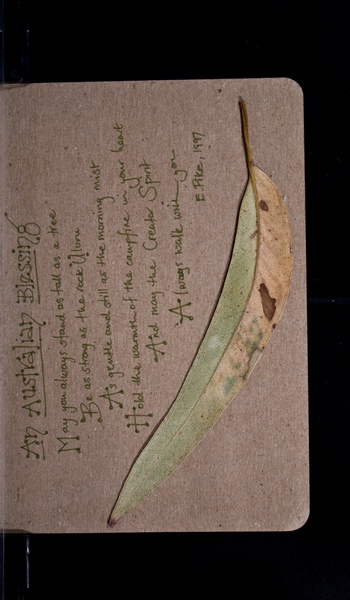 An Australian Blessing
May you always stand as tall as a tree
Be as strong as the rock Uluru
As gentle and still as the morning mist
Hold the warmth of the campfire in your heart
And may the Creator Spirit
Always walk with you
E. Pike, 1997